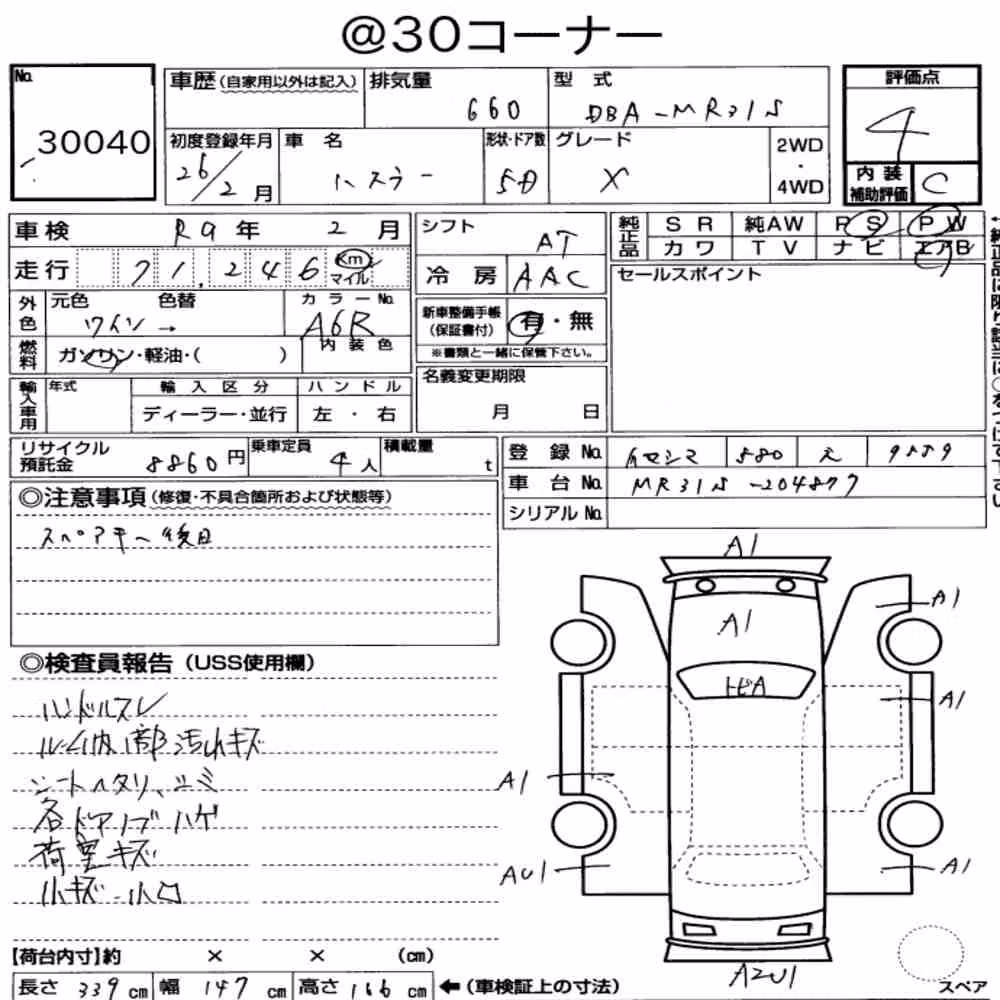 @30コーナー
No.
30040
車歴(自家用以外は記入)
排気量
660
型式
DBA-MR31S
評価点
4
初度登録年月
26/2月
車名
ハスラー
形状・ドア数
5D
グレード
X
2WD
・
4WD
内装
補助評価
C
車検 R9年 2月
走行 71,246 Km マイル
外色
元色
色替
ワイン →
カラーNo.
A6R
燃料
ガソリン・軽油・( )
内装色
輸入車用
年式
輸入区分
ディーラー・並行
ハンドル
左・右
シフト
AT
冷房 AAC
新車整備手帳
(保証書付)
有・無
※書類と一緒に保管下さい。
名義変更期限
月 日
純正品
SR 純AW PS PW
カワ TV ナビ エアB
セールスポイント
リサイクル
預託金
8860円
乗車定員
4人
積載量
t
登録No. 580 え
車台No. MR31S-204877
シリアルNo.
◎注意事項(修復・不具合箇所および状態等)
スペアキー後日
◎検査員報告(USS使用欄)
ハンドルスレ
ルーム内部汚れキズ
シートヘタリ、シミ
各ドアノブハゲ
荷室キズ
小キズ・小凹
A1
A1
A1
トビA
A1
A1
AU1
A1
A2U1
スペア
【荷台内寸】約 × × (cm)
長さ 339cm 幅 147cm 高さ 166cm ←(車検証上の寸法)